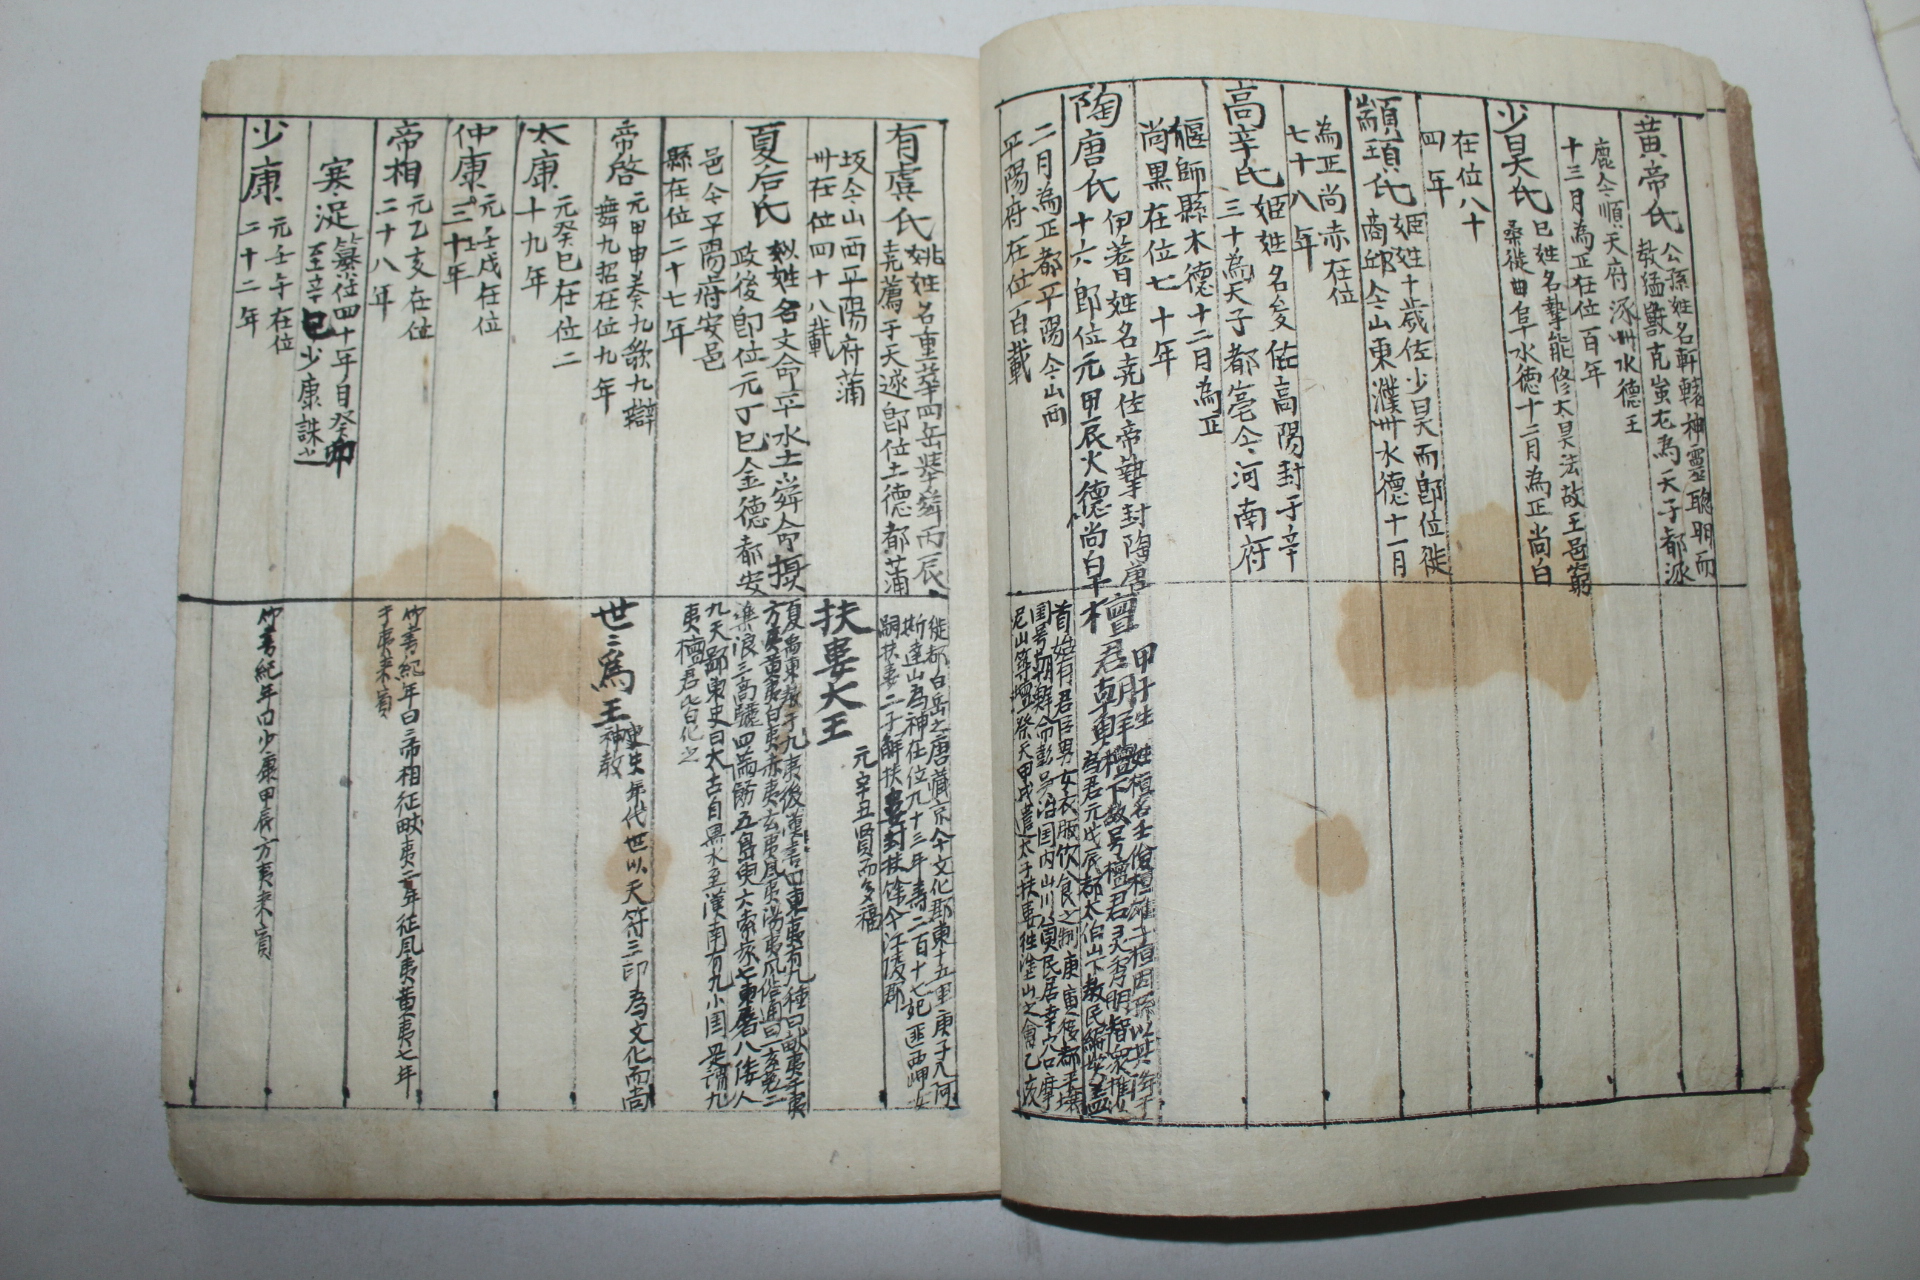 黄帝氏 公孫姓名軒轅神靈聰明而
教猛獸克蚩尤為天子都涿
鹿今順天府涿州水德王
十三月為正在位百年
少昊氏 己姓名摯能修太昊法故王邑窮
桑徙曲阜水德十二月為正尚白
在位八十
四年
顓頊氏 姬姓十歲佐少昊而即位徙
商邱今山東濮州水德十一月
為正尚赤在位
七十八年
高辛氏 姬姓名夋佐高陽封于辛
三十為天子都亳今河南府
偃師縣木德十二月為正
尚黑在位七十年
陶唐氏 伊耆姓名堯佐帝摯封陶唐
十六即位元甲辰火德尚白十
二月為正都平陽今山西
平陽府在位百載
檀君朝鮮
甲子生姓桓名壬儉桓雄子桓因孫以其降于
檀下故号檀君灵秀明智衆推以
為君元戊辰都太伯山下教民編髮盖
首始有君臣男女衣服飲食之制庚寅後都平壤
国号朝鮮命彭吳治国内山川奠民居幸穴口摩
尼山築壇祭天甲戌遣太子扶婁往塗山之會乙亥
有虞氏 姚姓名重華四岳擧舜丙辰
堯薦于天遂即位土德都蒲
坂今山西平陽府蒲
卅在位四十八載
徙都白岳之唐藏京今文化郡東十五里庚子入阿
斯達山為神在位九十三年壽二百十七妃匪西岬女
嗣扶婁二子解扶婁封扶餘今江陵郡
夏后氏 姒姓名文命平水土舜命攝
政後即位元丁巳金德都安
邑今平陽府安邑
縣在位二十七年
扶婁大王
元辛丑賢而多福
夏禹東教于九夷後漢書曰東夷有九種曰畎夷于夷
方夷黄夷白夷赤夷玄夷風夷陽夷爪俗通曰一玄菟二
樂浪三高驪四滿飭五鳧臾六索家七東屠八倭人
九天鄙東史曰太古自黑水至漢南有九小国是謂九
夷檀君皆化之
帝啓 元甲申奏九歌九辯
舞九招在位九年
世三為王
史年代世以天符三印為文化而尚
神教
太康 元癸巳在位二
十九年
仲康 元壬戌在位
三十年
帝相 元乙亥在位
二十八年
竹書紀年曰帝相征畎夷二年征風夷黄夷七年
于夷来賓
寒浞 簒位四十年自癸卯
至辛巳少康誅之
少康 元壬午在位
二十二年
竹書紀年曰少康甲辰方夷来賓